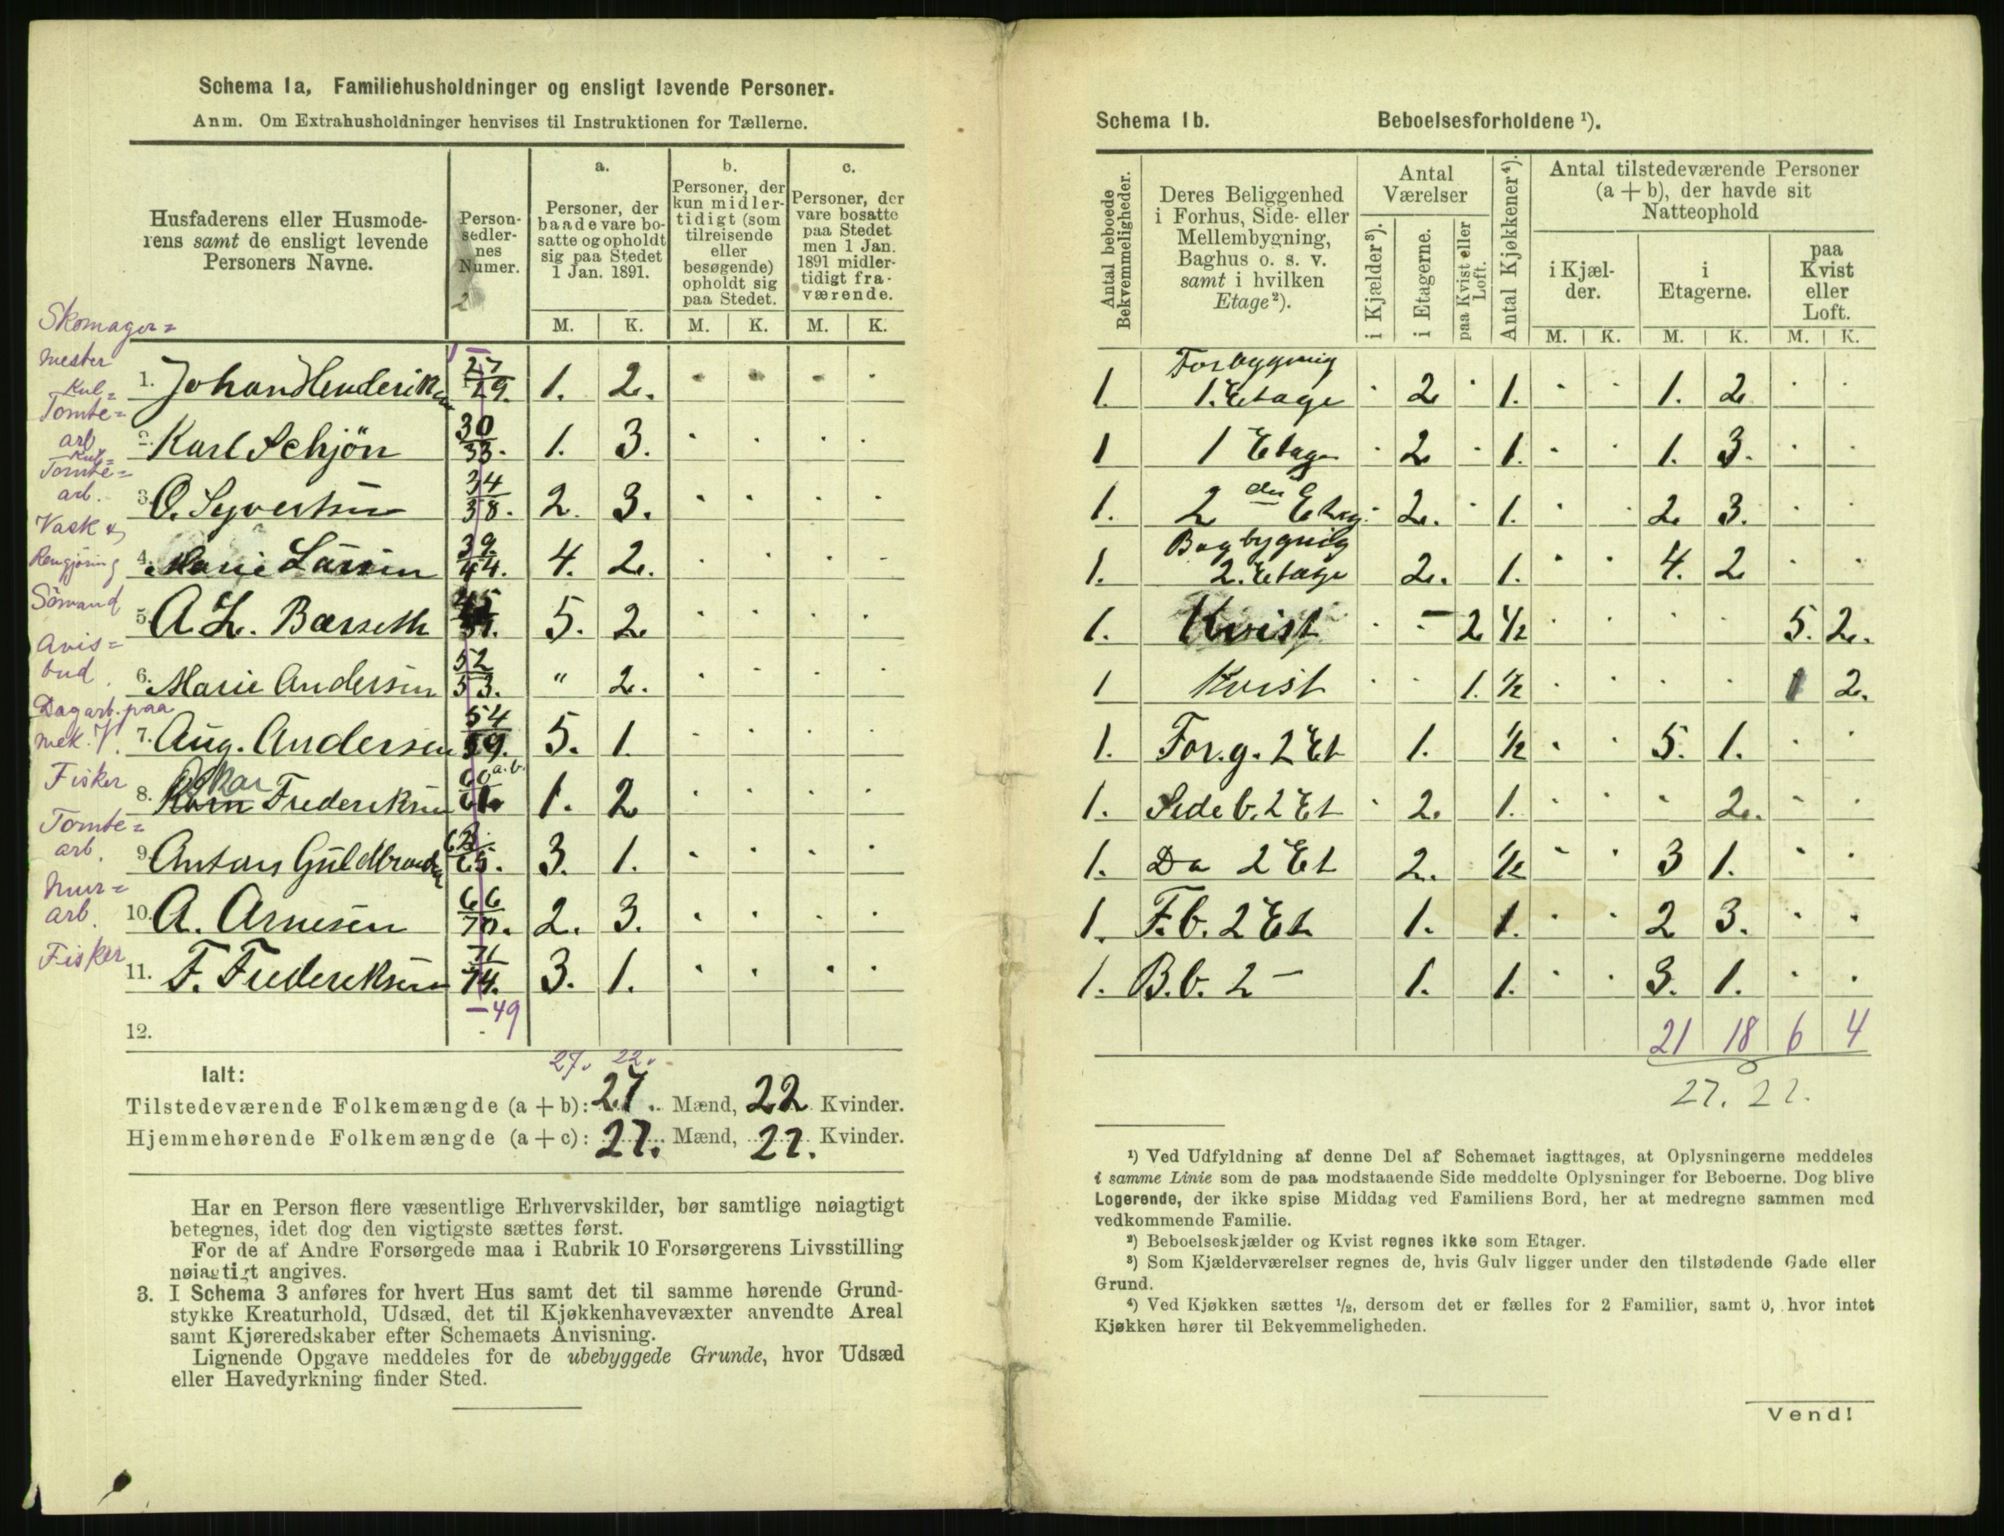 Schema 1a, Familiehusholdninger og ensligt levende Personer.
Anm. Om Extrahusholdninger henvises til Instruktionen for Tællerne.
Husfaderens eller Husmoderens samt de ensligt levende Personers Navne.
Personsedlernes Numer.
a. Personer, der baade vare bosatte og opholdt sig paa Stedet 1 Jan. 1891.
b. Personer, der kun midlertidigt (som tilreisende eller besøgende) opholdt sig paa Stedet.
c. Personer, der vare bosatte paa Stedet men 1 Jan. 1891 midlertidigt fraværende.
M. K. M. K. M. K.
Skomager=mester 1. Johan Henderik 27/29. 1. 2.
Kul=Tomte=arb 2. Karl Schjön 30/33. 1. 3.
Kul=Tomte=arb. 3. O. Syvertsen 34/38. 2. 3.
Vask & Rengjøring 4. Marie Larsen 39/44. 4. 2.
Sömand 5. A. L. Barseth 45/51. 5. 2
Avis=bud. 6. Marie Andersen 52/53. " 2.
Dagarb. paa mek. V. 7. Aug. Andersen 54/59. 5. 1.
Fisker 8. Oskar Frederiksen 60 a.b./61. 1. 2
Tomte=arb. 9. Antons Guldbrand 62/65. 3. 1.
Mur=arb. 10. A. Arnesen 66/70. 2. 3.
Fisker 11. F. Frederiksen 71/74. 3. 1.
12. — 49
27. 22.
Ialt:
Tilstedeværende Folkemængde (a + b): 27. Mænd, 22 Kvinder.
Hjemmehørende Folkemængde (a + c): 27. Mænd, 22. Kvinder.
Har en Person flere væsentlige Erhvervskilder, bør samtlige nøiagtigt
betegnes, idet dog den vigtigste sættes først.
For de af Andre Forsørgede maa i Rubrik 10 Forsørgerens Livsstilling
nøiagtigt angives.
3. I Schema 3 anføres for hvert Hus samt det til samme hørende Grund-
stykke Kreaturhold, Udsæd, det til Kjøkkenhavevæxter anvendte Areal
samt Kjøreredskaber efter Schemaets Anvisning.
Lignende Opgave meddeles for de ubebyggede Grunde, hvor Udsæd
eller Havedyrkning finder Sted.
Schema 1b. Beboelsesforholdene ¹).
Antal beboede Bekvemmeligheder.
Deres Beliggenhed i Forhus, Side- eller Mellembygning, Baghus o. s. v. samt i hvilken Etage²).
Antal Værelser
i Kjælder³). i Etagerne. paa Kvist eller Loft.
Antal Kjøkkener⁴).
Antal tilstedeværende Personer (a + b), der havde sit Natteophold
i Kjælder. i Etagerne. paa Kvist eller Loft.
M. K. M. K. M. K.
1. Forbygnig 1. Etage 2 1. 1. 2
1 1 Etage 2 1. 1. 3.
1. 2 den Etag. 2. 1. 2. 3.
1. Bagbygnig 2. Etage 2. 1. 4. 2
1. Kvist – 2 ½ 5. 2.
1 Kvist 1. ½ 1 2.
1. For.g. 2 Et 1. ½ 5. 1.
1. Side b. 2 Et 2. 1. 2.
1. Do 2 Et 2. ½ 3 1.
1. F.b. 2 Et 1. 1. 2 3.
1. B.b. 2 – 1. 1. 3. 1.
21 18 6 4
27. 22.
¹) Ved Udfyldning af denne Del af Schemaet iagttages, at Oplysningerne meddeles
i samme Linie som de paa modstaaende Side meddelte Oplysninger for Beboerne. Dog blive
Logerende, der ikke spise Middag ved Familiens Bord, her at medregne sammen med
vedkommende Familie.
²) Beboelseskjælder og Kvist regnes ikke som Etager.
³) Som Kjælderværelser regnes de, hvis Gulv ligger under den tilstødende Gade eller
Grund.
⁴) Ved Kjøkken sættes ½, dersom det er fælles for 2 Familier, samt 0, hvor intet
Kjøkken hører til Bekvemmeligheden.
Vend!